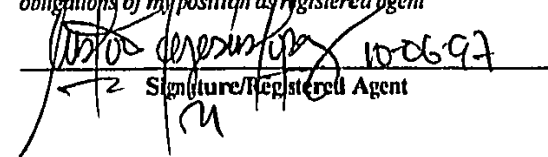 obligations of my position as registered agent
10-06-97
Signature/Registered Agent